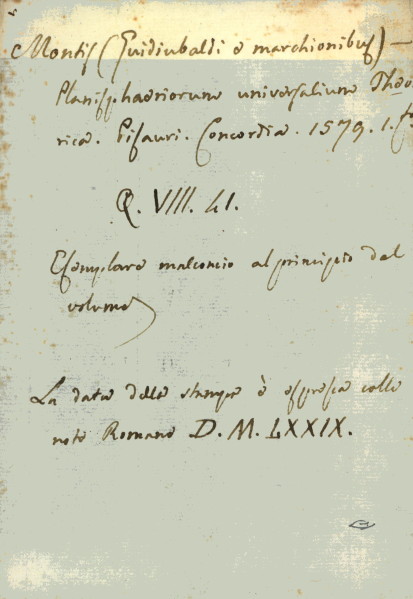 Montis (Guidiubaldi e marchionibus) —
Planisphaeriorum universalium Theo
rica. Pisauri. Concordia. 1579. 1. f
Q. VIII. 41.
Esemplare malconcio al principio del
volume
La data della stampa è espressa colle
note Romane D. M. LXXIX.